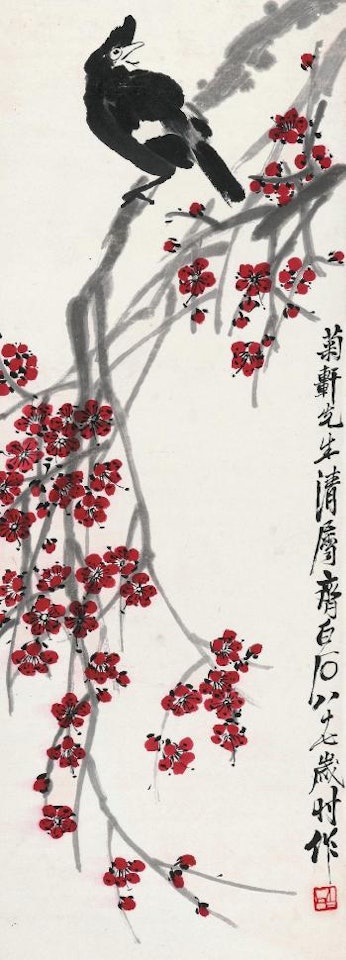 菊軒先生清屬齊白石八十七歲時作